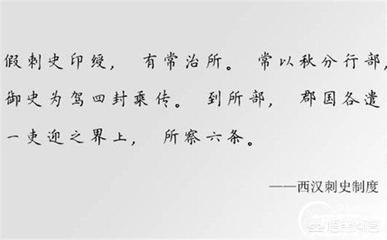 假刺史印绶，有常治所。常以秋分行部，
御史为驾四封乘传。到所部，郡国各遣
一吏迎之界上，所察六条。
——西汉刺史制度